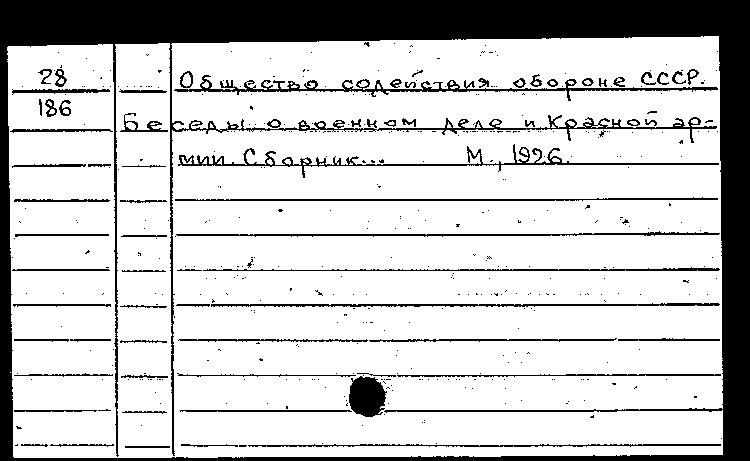 28 Общество содействия обороне СССР.
186 Беседы о военном деле и Красной ар-
мии. Сборник... М., 1926.